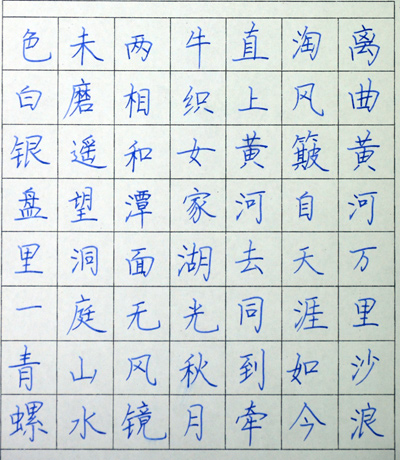 离曲黄河万里沙浪
淘风簸自天涯如今
直上黄河去同到牵
牛织女家湖光秋月
两相和潭面无风镜
未磨遥望洞庭山水
色白银盘里一青螺